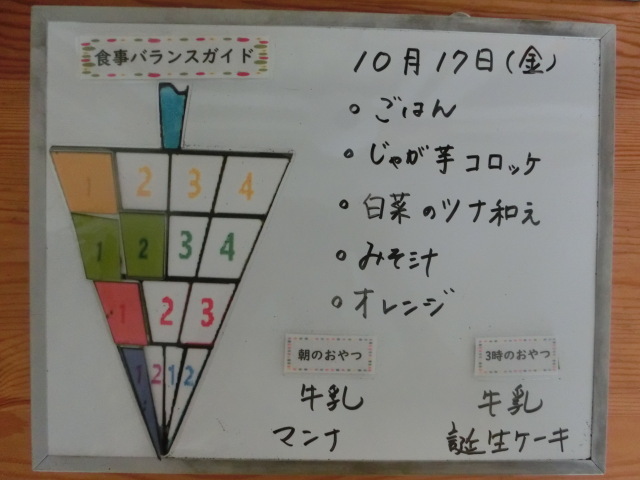 食事バランスガイド
10月17日(金)
。ごはん
。じゃが芋コロッケ
。白菜のツナ和え
。みそ汁
。オレンジ
1 2 3 4
1 2 3 4
1 2 3
1 2 1 2
朝のおやつ
牛乳
マンナ
3時のおやつ
牛乳
誕生ケーキ